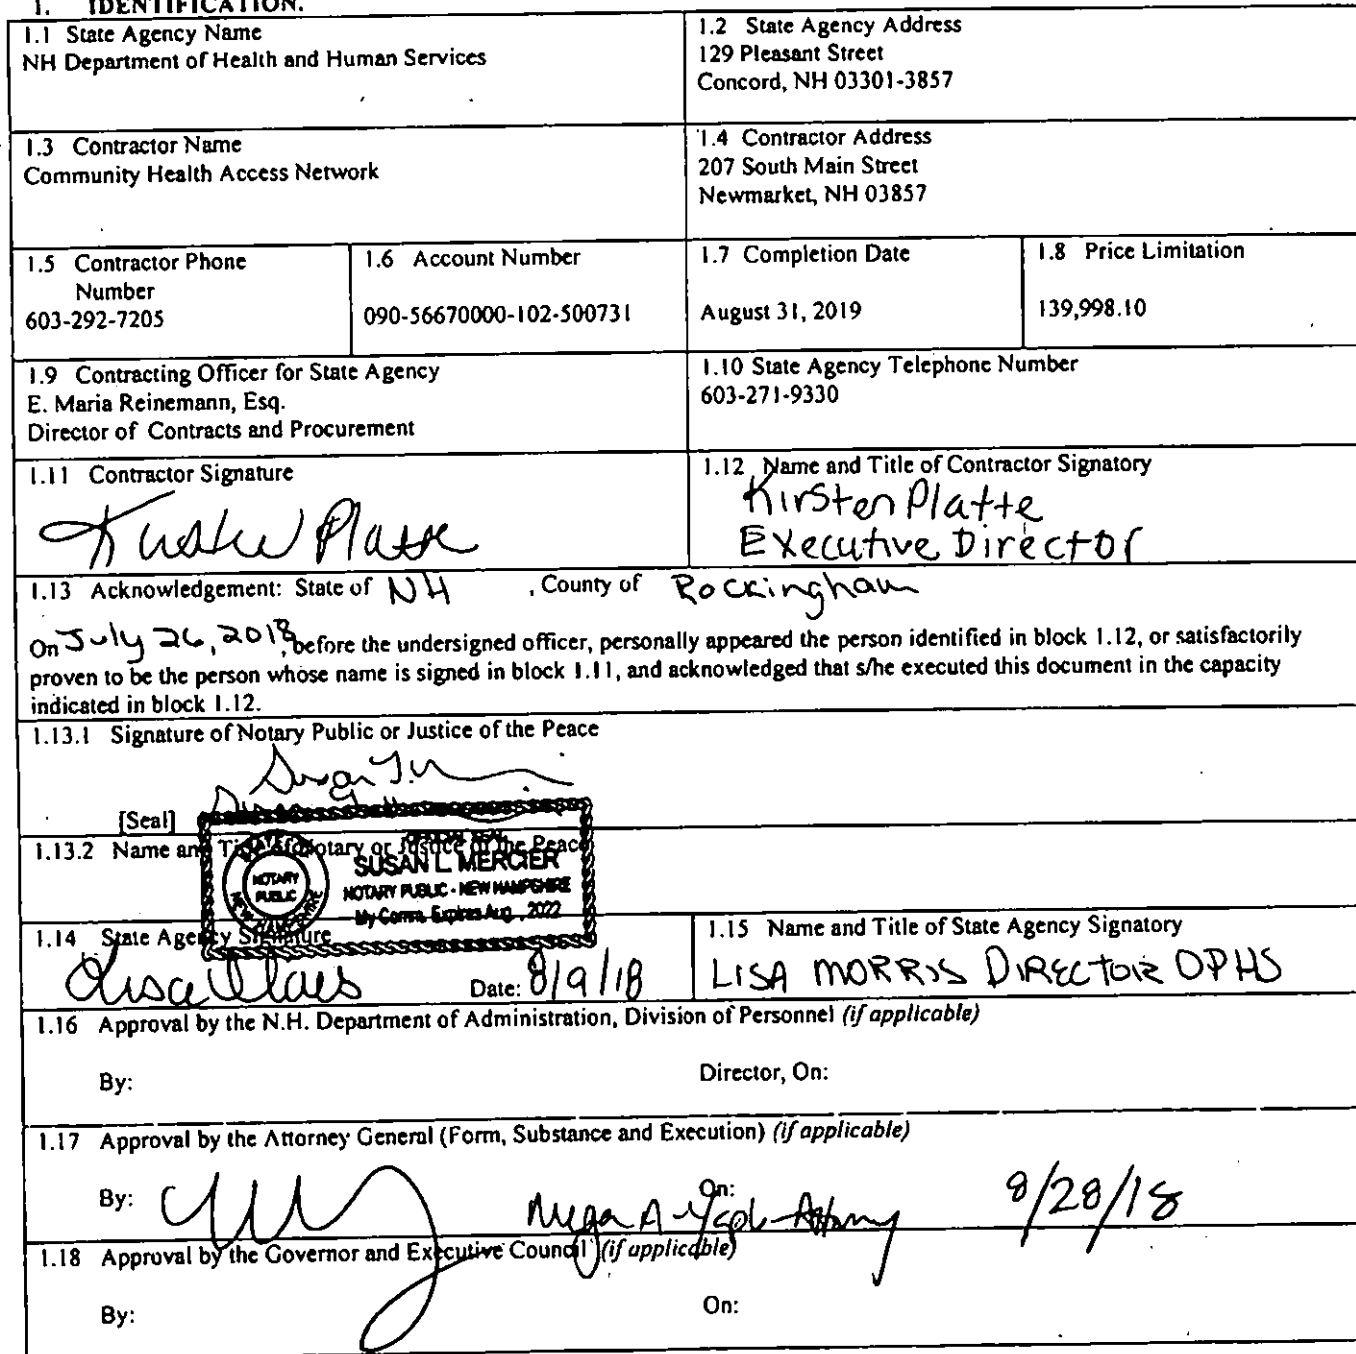 1. IDENTIFICATION.
1.1 State Agency Name
NH Department of Health and Human Services
1.2 State Agency Address
129 Pleasant Street
Concord, NH 03301-3857
1.3 Contractor Name
Community Health Access Network
1.4 Contractor Address
207 South Main Street
Newmarket, NH 03857
1.5 Contractor Phone
Number
603-292-7205
1.6 Account Number
090-56670000-102-500731
1.7 Completion Date
August 31, 2019
1.8 Price Limitation
139,998.10
1.9 Contracting Officer for State Agency
E. Maria Reinemann, Esq.
Director of Contracts and Procurement
1.10 State Agency Telephone Number
603-271-9330
1.11 Contractor Signature
Kirsten Platte
1.12 Name and Title of Contractor Signatory
Kirsten Platte
Executive Director
1.13 Acknowledgement: State of NH , County of Rockingham
On July 26, 2018, before the undersigned officer, personally appeared the person identified in block 1.12, or satisfactorily
proven to be the person whose name is signed in block 1.11, and acknowledged that s/he executed this document in the capacity
indicated in block 1.12.
1.13.1 Signature of Notary Public or Justice of the Peace
[Seal]
1.13.2 Name and Title of Notary or Justice of the Peace
NOTARY
PUBLIC
SUSAN L. MERCIER
NOTARY PUBLIC - NEW HAMPSHIRE
My Comm. Expires Aug , 2022
1.14 State Agency Signature
Date: 8/9/18
1.15 Name and Title of State Agency Signatory
LISA MORRIS DIRECTOR DPHS
1.16 Approval by the N.H. Department of Administration, Division of Personnel (if applicable)
By: Director, On:
1.17 Approval by the Attorney General (Form, Substance and Execution) (if applicable)
By: On: 8/28/18
1.18 Approval by the Governor and Executive Council (if applicable)
By: On: